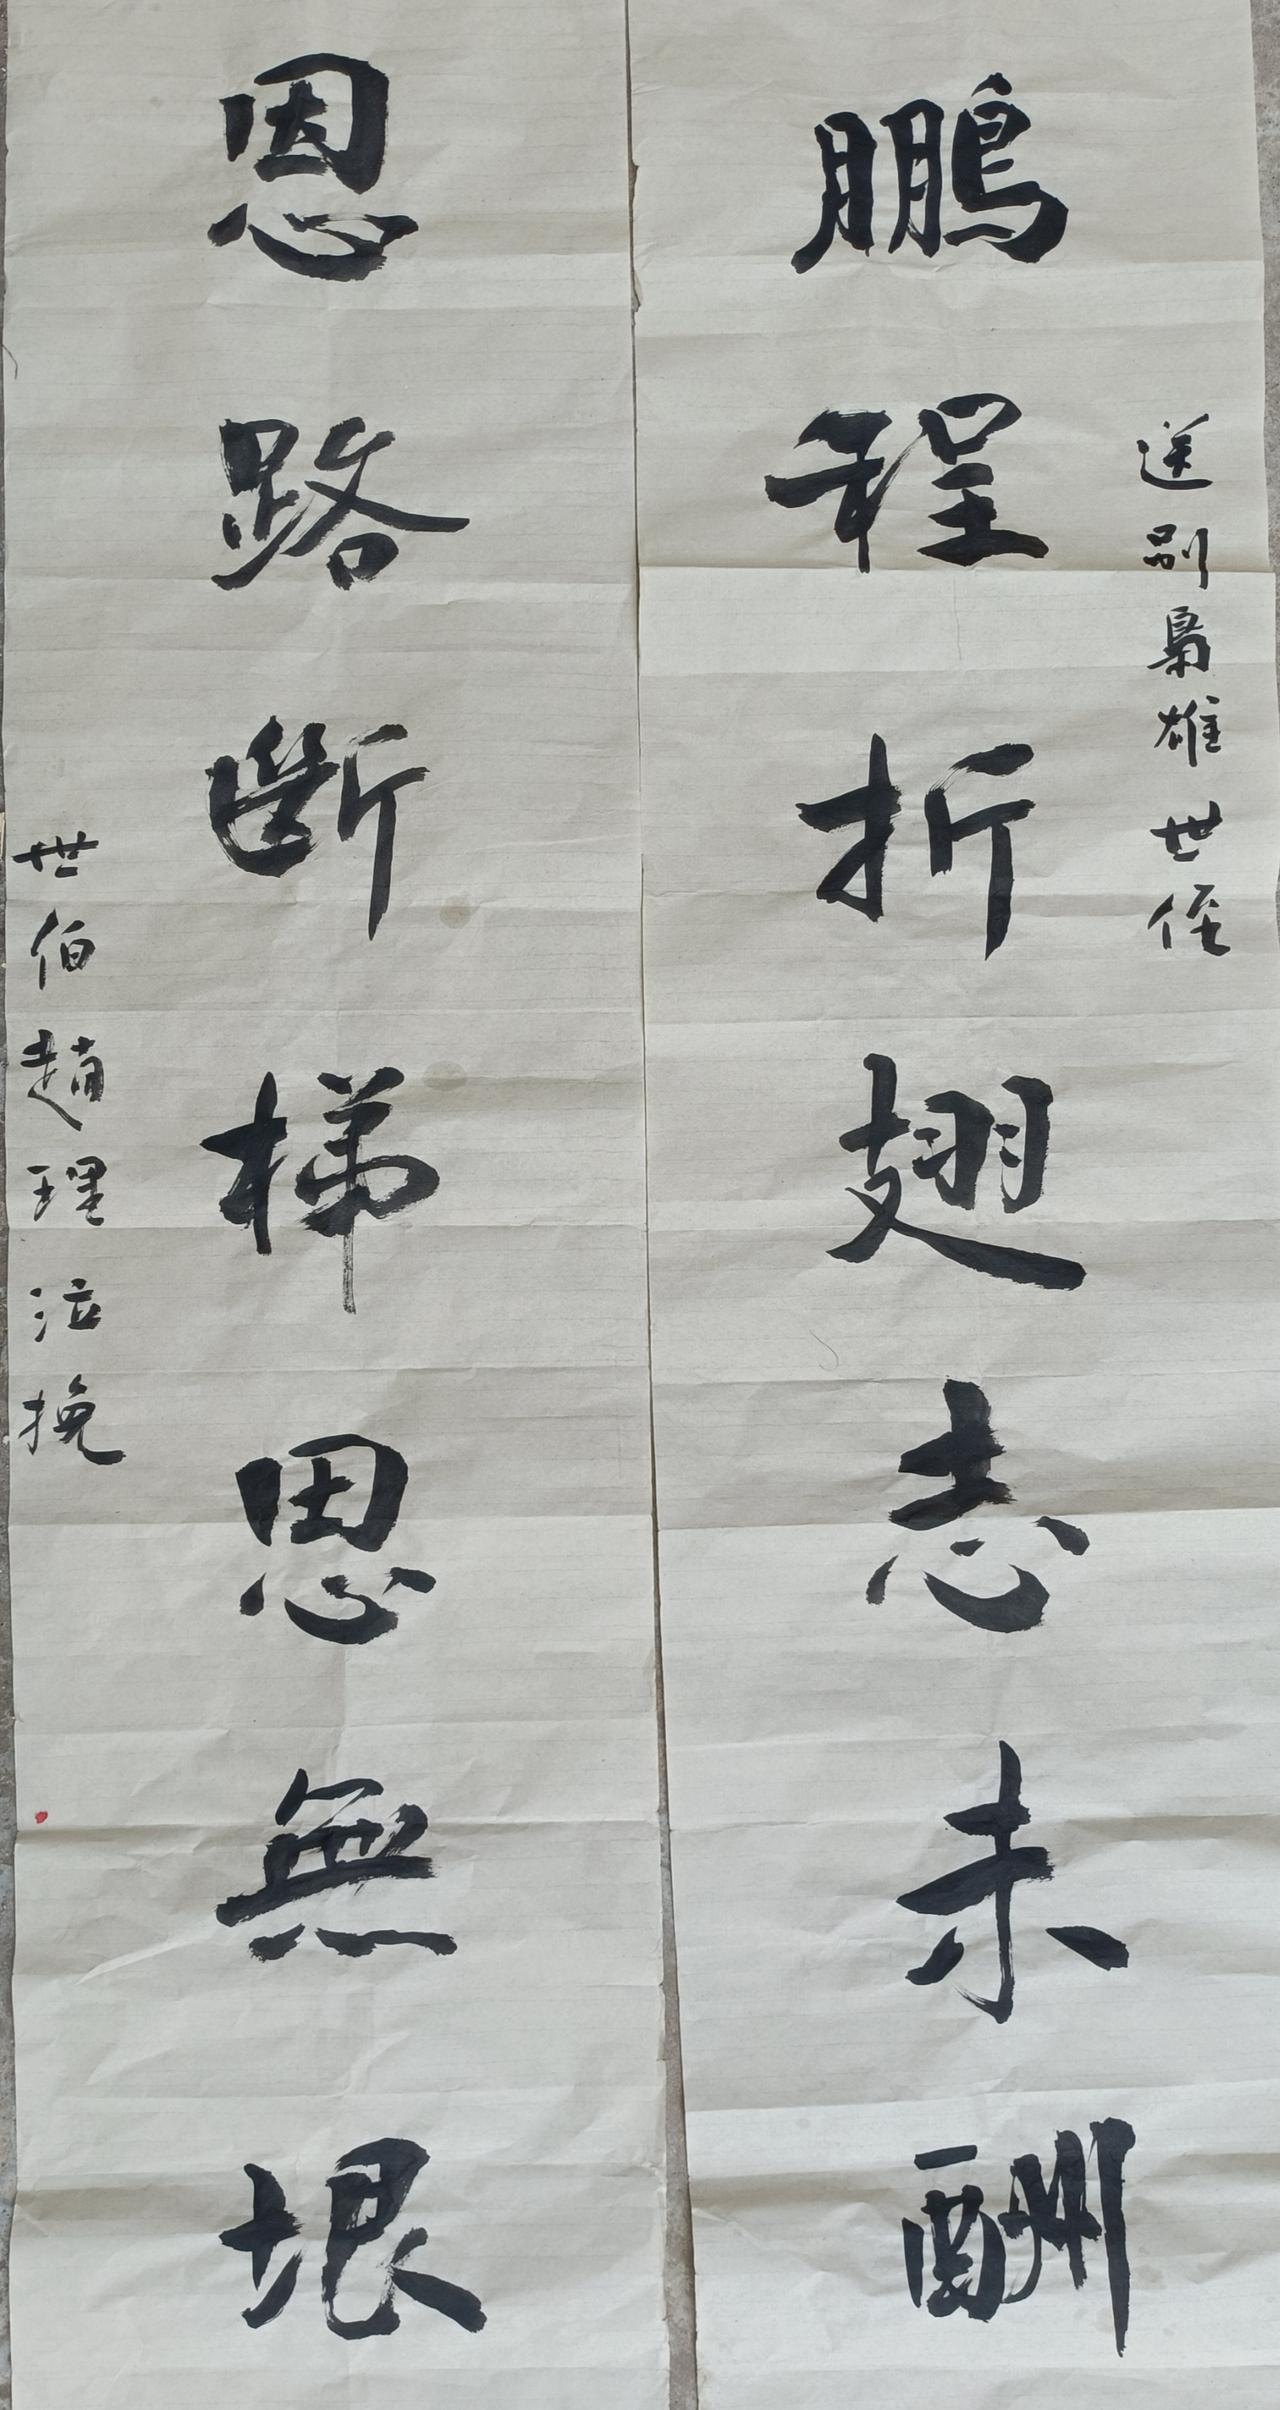 送别梟雄世侄
鵬程折翅志未酬
恩路斷梯思無垠
世伯趙理泣挽